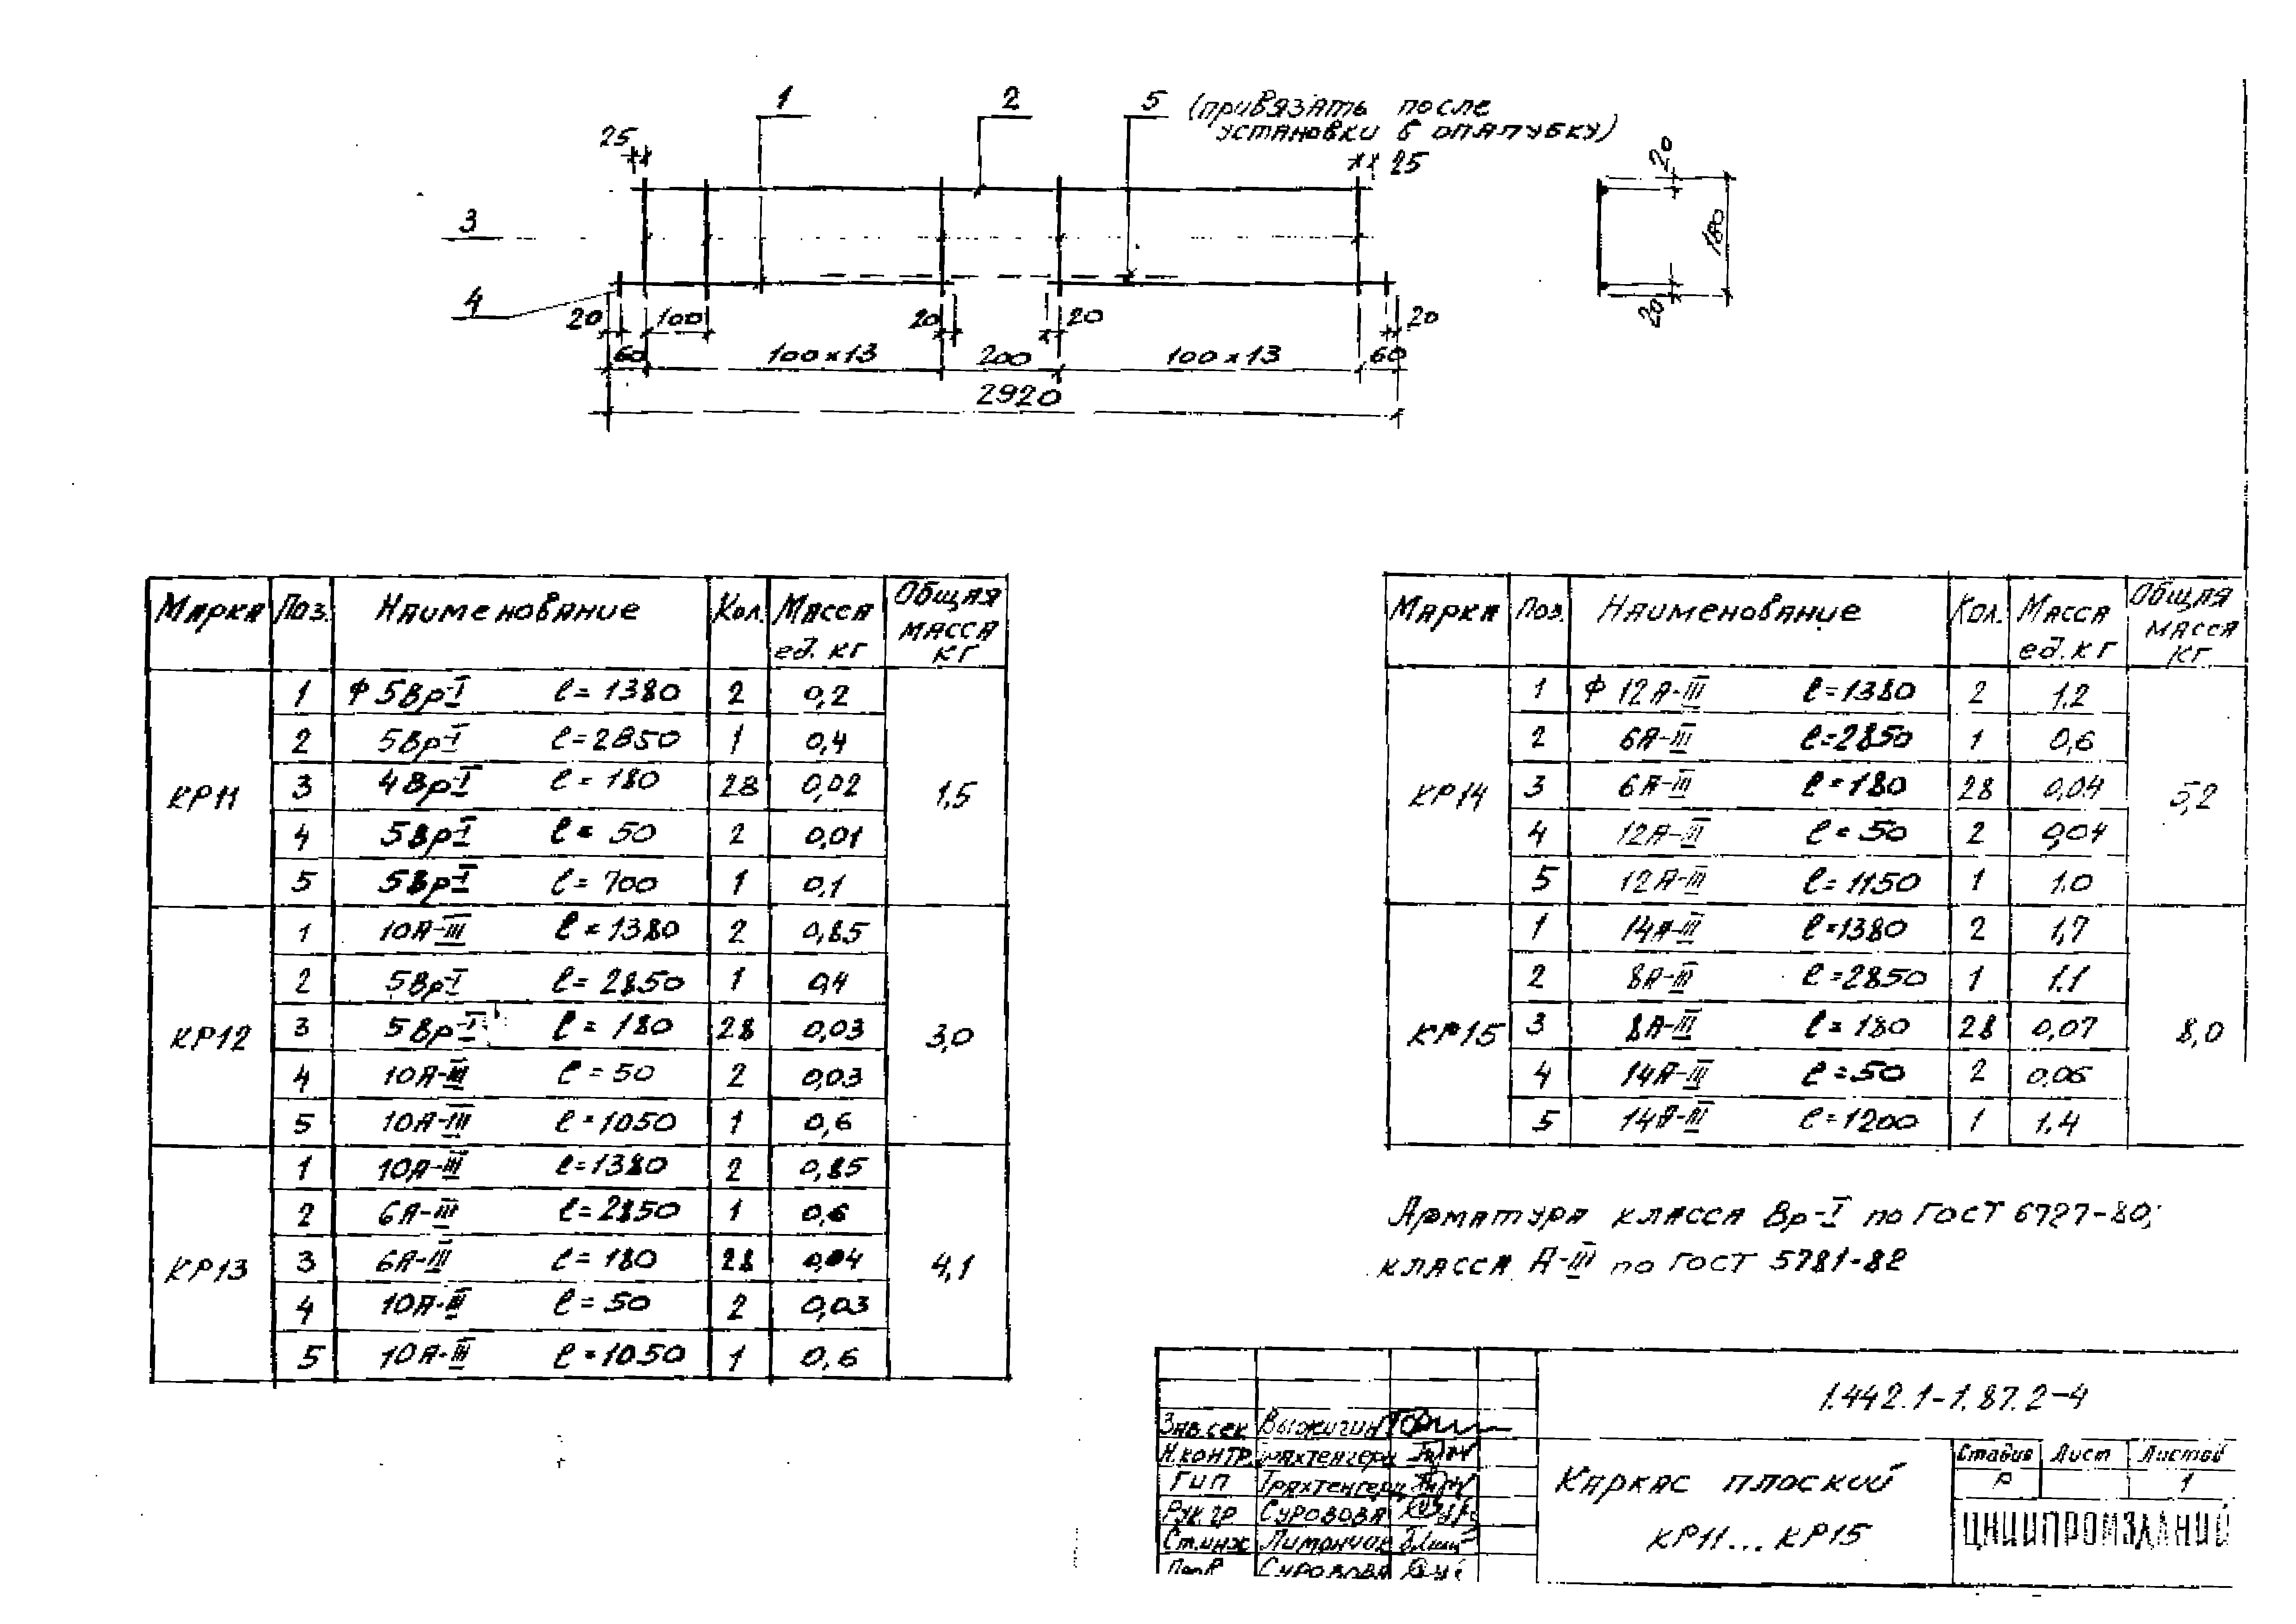 1 2 5 (привязать после
установки в опалубку)
25 25
3
4
20 100 20 20 20
60 100х13 200 100х13 60
2920
20
180
20
Марка Поз. Наименование Кол. Масса ед. кг Общая масса кг
КР11 1,5
1 ф 5Вр-I ℓ= 1380 2 0,2
2 5Вр-I ℓ=2850 1 0,4
3 4Вр-I ℓ= 180 28 0,02
4 5Вр-I ℓ= 50 2 0,01
5 5Вр-I ℓ= 700 1 0,1
КР12 3,0
1 10А-III ℓ=1380 2 0,85
2 5Вр-I ℓ= 2850 1 0,4
3 5Вр-I ℓ= 180 28 0,03
4 10А-III ℓ=50 2 0,03
5 10А-III ℓ=1050 1 0,6
КР13 4,1
1 10А-III ℓ=1380 2 0,85
2 6А-III ℓ=2850 1 0,6
3 6А-III ℓ= 180 28 0,04
4 10А-III ℓ=50 2 0,03
5 10А-III ℓ=1050 1 0,6
Марка Поз. Наименование Кол. Масса ед. кг Общая масса кг
КР14 5,2
1 ф 12А-III ℓ=1380 2 1.2
2 6А-III ℓ=2850 1 0,6
3 6А-III ℓ=180 28 0,04
4 12А-III ℓ=50 2 0,04
5 12А-III ℓ=1150 1 1.0
КР15 8,0
1 14А-III ℓ=1380 2 1,7
2 8А-III ℓ=2850 1 1.1
3 8А-III ℓ=180 28 0,07
4 14А-III ℓ=50 2 0,06
5 14А-III ℓ=1200 1 1.4
Арматура класса Вр-I по ГОСТ 6727-80;
класса А-III по ГОСТ 5781-82
1.442.1-1.87.2-4
Зав.сек Выжигин
Н.контр. Трахтенгерц
ГИП Трахтенгерц
Рук.гр Суровова
Ст.инж
Суровова
Каркас плоский
КР11...КР15
Стадия Лист Листов
Р 1
ЦНИИПРОМЗДАНИЙ